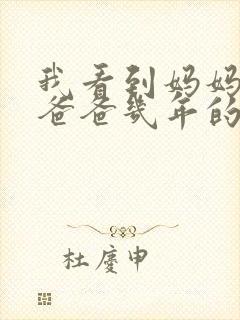 我看到妈妈
爸爸几年的
杜庆申